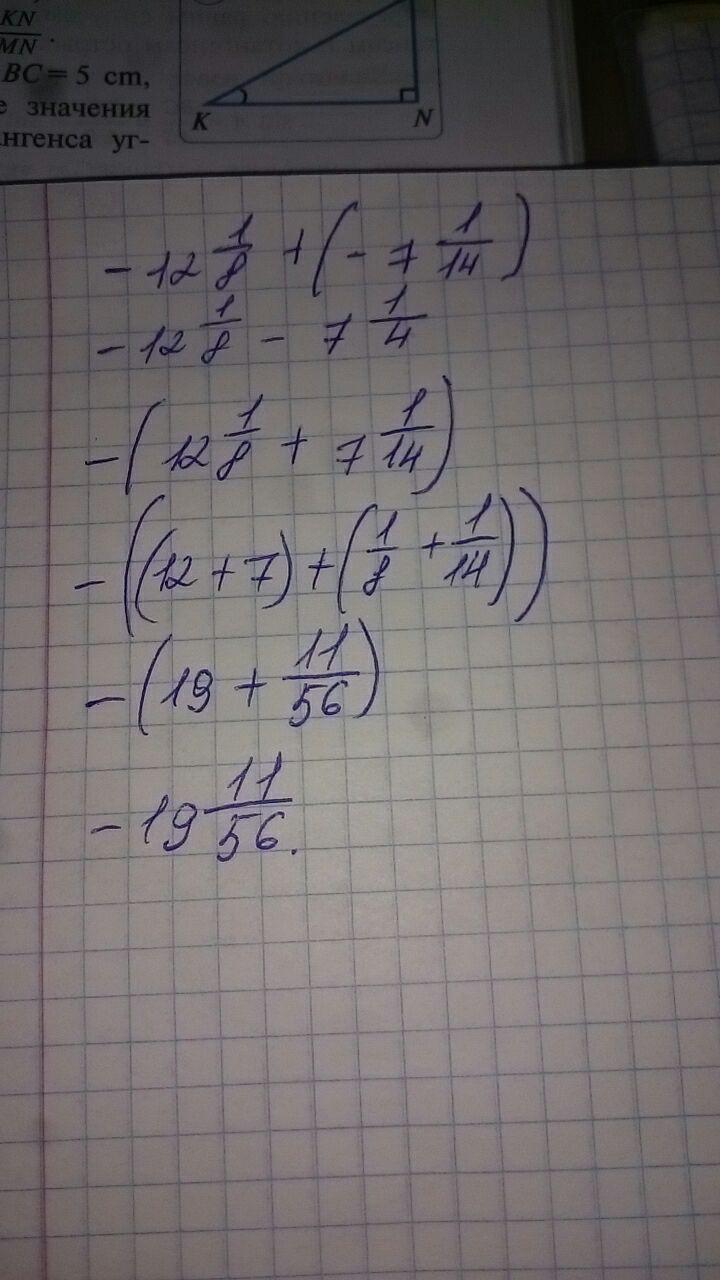 KN
MN .
BC = 5 cm,
е значения
нгенса уг-
K N
-12 1/8 + (-7 1/14)
-12 1/8 - 7 1/4
-(12 1/8 + 7 1/14)
-((12 + 7) + (1/8 + 1/14))
-(19 + 11/56)
-19 11/56.